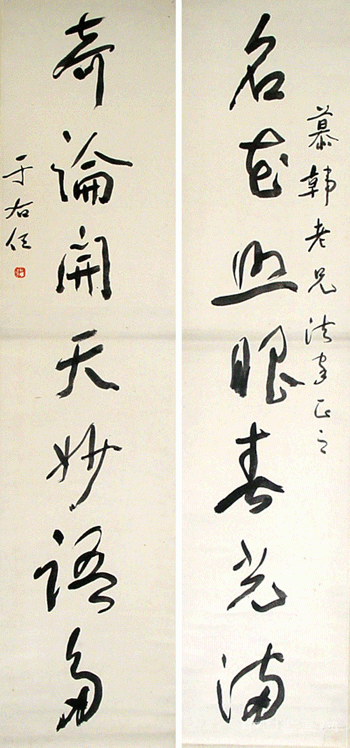 名花照眼春光满
慕韩老兄法家正之
奇論開天妙語多
于右任